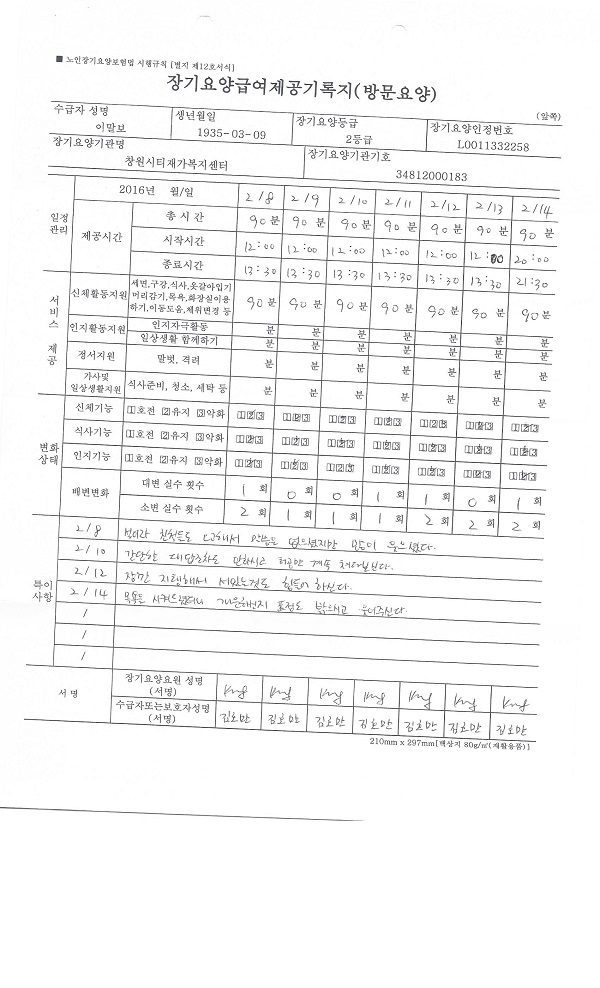 ■ 노인장기요양보험법 시행규칙 [별지 제12호서식]
장기요양급여제공기록지(방문요양)
(앞쪽)
수급자 성명 생년월일 장기요양등급 장기요양인정번호
이말보 1935-03-09 2등급 L0011332258
장기요양기관명 장기요양기관기호
창원시티재가복지센터 34812000183
일정관리 2016년 월/일 2/8 2/9 2/10 2/11 2/12 2/13 2/14
제공시간 총 시 간 90분 90분 90분 90분 90분 90분 90분
시작시간 12:00 12:00 12:00 12:00 12:00 12:00 20:00
종료시간 13:30 13:30 13:30 13:30 13:30 13:30 21:30
서비스 제공
신체활동지원 세면,구강,식사,옷갈아입기 머리감기,목욕,화장실이용하기,이동도움,체위변경 등 90분 90분 90분 90분 90분 90분 90분
인지활동지원 인지자극활동 분 분 분 분 분 분 분
일상생활 함께하기 분 분 분 분 분 분 분
정서지원 말벗, 격려 분 분 분 분 분 분 분
가사및 일상생활지원 식사준비, 청소, 세탁 등 분 분 분 분 분 분 분
변화상태
신체기능 1호전 2유지 3악화 123 123 123 123 123 123 123
식사기능 1호전 2유지 3악화 123 123 123 123 123 123 123
인지기능 1호전 2유지 3악화 123 123 123 123 123 123 123
배변변화 대변 실수 횟수 1회 0회 0회 1회 1회 0회 1회
소변 실수 횟수 2회 1회 1회 1회 2회 2회 2회
특이사항
2/8 친척들도 웃으셨다.
2/10 간단한 계속 쳐다보신다.
2/12 잠깐 지탱해서 서있는것도 힘들어 하신다.
2/14 목욕을 시켜드렸더니 개운하신지 표정도 밝으시고 웃어주신다.
/
/
/
서 명 장기요양요원 성명 (서명)
수급자또는보호자성명 (서명) 김호만 김호만 김호만 김호만 김호만 김호만 김호만
210mm x 297mm[백상지 80g/㎡(재활용품)]